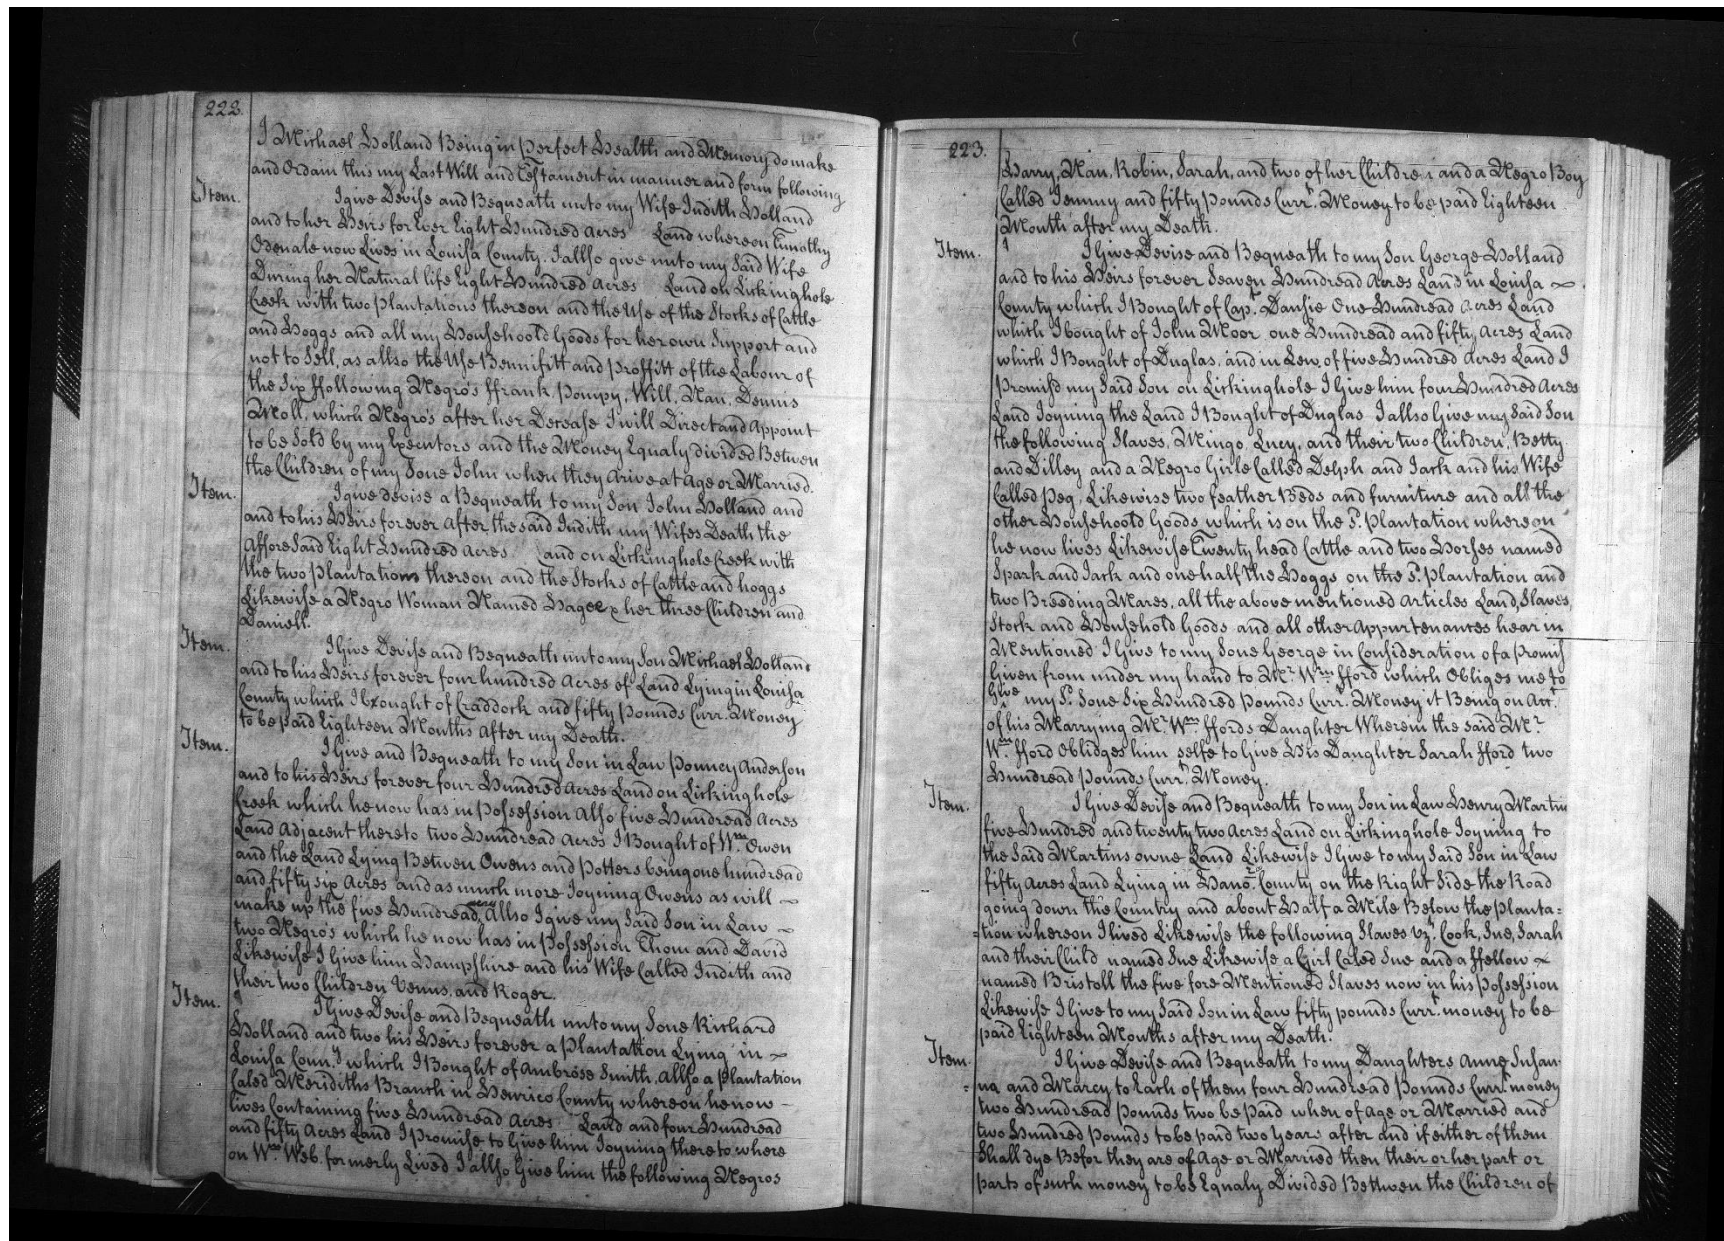 222.
I Michael Holland Being in perfect Health and Memory do make
and Ordain this my Last Will and Testament in manner and form following
Item. I give Devise and Bequeath unto my Wife Judith Holland
and to her Heirs for Ever Eight Hundred acres Land whereon Timothy
Odenale now Lives in Louisa County. I allso give unto my Said Wife
During her Natural life Eight Hundred Acres Land on Lickinghole
Creek with two plantations thereon and the Use of the Stocks of Cattle
and Hoggs and all my Househoold Goods for her own Support and
not to Sell, as allso the Use Bennifitt and proffitt of the Labour of
the Six ffollowing Negro's ffrank, Pompy, Will, Nan, Dennis
Moll, which Negro's after her Decease I will Direct and Appoint
to be Sold by my Executors and the Money Equaly divided Betwen
the Children of my Sone John when they Arive at Age or Married.
Item. I give devise a Bequeath to my Son John Holland and
and to his Heirs forever after the said Judith my Wifes Death the
Afforesaid Eight Hundred acres Land on Lickinghole Creek with
the two plantations thereon and the Stocks of Cattle and hoggs
Likewise a Negro Woman Named Hagee & her three Children and
Daniell.
Item. I Give Devise and Bequeath unto my Son Michael Holland
and to his Heirs forever four hundred Acres of Land Lying in Louisa
County which I bought of Craddock and fifty pounds Curr. Money
to be paid Eighteen Months after my Death.
Item. I Give and Bequeath to my Son in Law Pouncy Anderson
and to his Heirs forever four Hundred Acres Land on Lickinghole
Creek which he now has in possession Also five Hundread Acres
Land Adjacent thereto two Hundread Acres I Bought of Wm. Owen
and the Land Lying Betwen Owens and Potters being one hundread
and fifty six Acres and as much more Joyning Owens as will
make up the five Hundread acres Allso I give my Said Son in Law
two Negro's which he now has in possession Thom and David
Likewise I Give him Hampshire and his Wife Called Judith and
their two Children Venus, and Roger.
Item. I Give Devise and Bequeath unto my Sone Richard
Holland and two his Heirs forever a plantation Lying in
Louisa Coun.ty which I Bought of Ambrose Smith, Allso a plantation
Caled Meridiths Branch in Henrico County whereon he now
lives Containing five Hundread Acres Land and four Hundread
and fifty Acres Land I promise to Give him Joyning thereto where
on Wm. Web. formerly Lived I allso Give him the following Negros
223.
Harry, Nan, Robin, Sarah, and two of her Children and a Negro Boy
Called Jemmy and fifty pounds Curr.t Money to be paid Eighteen
Month after my Death.
Item. I Give Devise and Bequeath to my Son George Holland
and to his Heirs forever Seaven Hundread Acres Land in Louisa
County which I Bought of Cap.t Dansie One Hundread Acres Land
which I bought of John Moor one Hundread and fifty Acres Land
which I Bought of Duglas, and in Lew of five Hundread Acres Land I
Promis'd my Said Son on Lickinghole I Give him four Hundread Acres
Land Joyning the Land I Bought of Duglas I allso Give my Said Son
the following Slaves, Mingo, Lucy, and their two Children, Betty
and Dilley and a Negro Girle Called Delph and Jack and his Wife
Called Peg, Likewise two feather Beds and furniture and all the
other Househoold Goods which is on the s.d plantation whereon
he now lives Likewise Twenty head Cattle and two Horses named
Spark and Jack and one half the Hoggs on the s.d plantation and
two Breeding Mares, all the above mentioned Articles Land, Slaves,
Stock and Household Goods and all other Appurtenances hear in
Mentioned I Give to my Sone George in Consideration of a Promis
Given from under my hand to Mr. Wm. fford which Obliges me to
Give my s.d Sone Six Hundread pounds Curr.t Money it Being on Acc.t
of his Marrying Mr. Wm. ffords Daughter Wherein the said Mr.
Wm. fford Oblidges him selfe to Give His Daughter Sarah fford two
Hundread pounds Curr.t Money.
Item. I Give Devise and Bequeath to my Son in Law Henry Martin
five Hundred and twenty two Acres Land on Lickinghole Joyning to
the Said Martins owne Land Likewise I Give to my Said Son in Law
fifty Acres Land Lying in Hano.r County on the Right Side the Road
going down the Country and about Half a Mile Below the Planta=
=tion whereon I lived Likewise the following Slaves Vz.t Cook, Sue, Sarah
and their Child named Sue Likewise a Girl Caled Sue and a ffellow
named Bristoll the five fore Mentioned Slaves now in his possession
Likewise I Give to my Said Son in Law fifty pounds Curr.t money to be
paid Eighteen Months after my Death.
Item. I Give Devise and Bequeath to my Daughters Anne, Susan-
=na and Marcy to Each of them four Hundread pounds Curr.t money
two Hundread pounds two be paid when of Age or Married and
two Hundred pounds to be paid two Years after and if either of them
Shall dye Befor they are of Age or Married then their or her part or
parts of such money to be Equaly Divided Bettwen the Children of